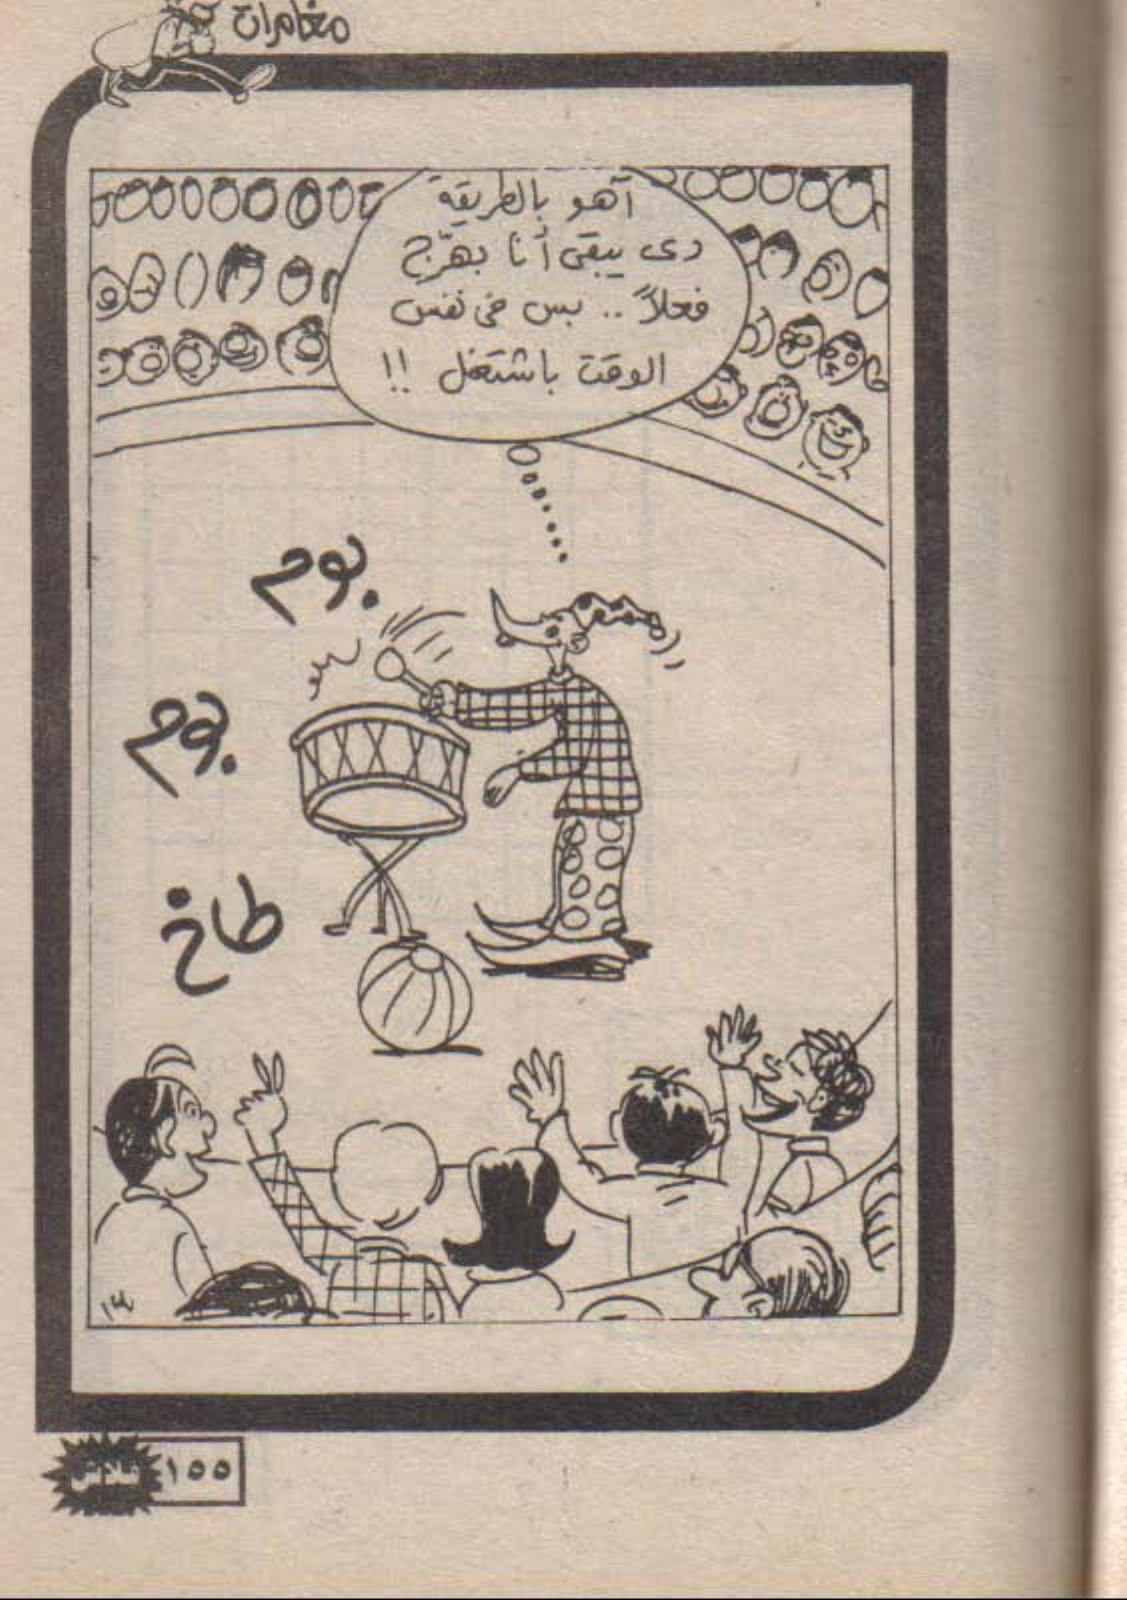 مغامرات
آهو بالطريقة
دى يبقى أنا بهرّج
فعلاً .. بس فى نفس
الوقت باشتغل !!
بوم
بوم
طاخ
١٥٥
فلاش